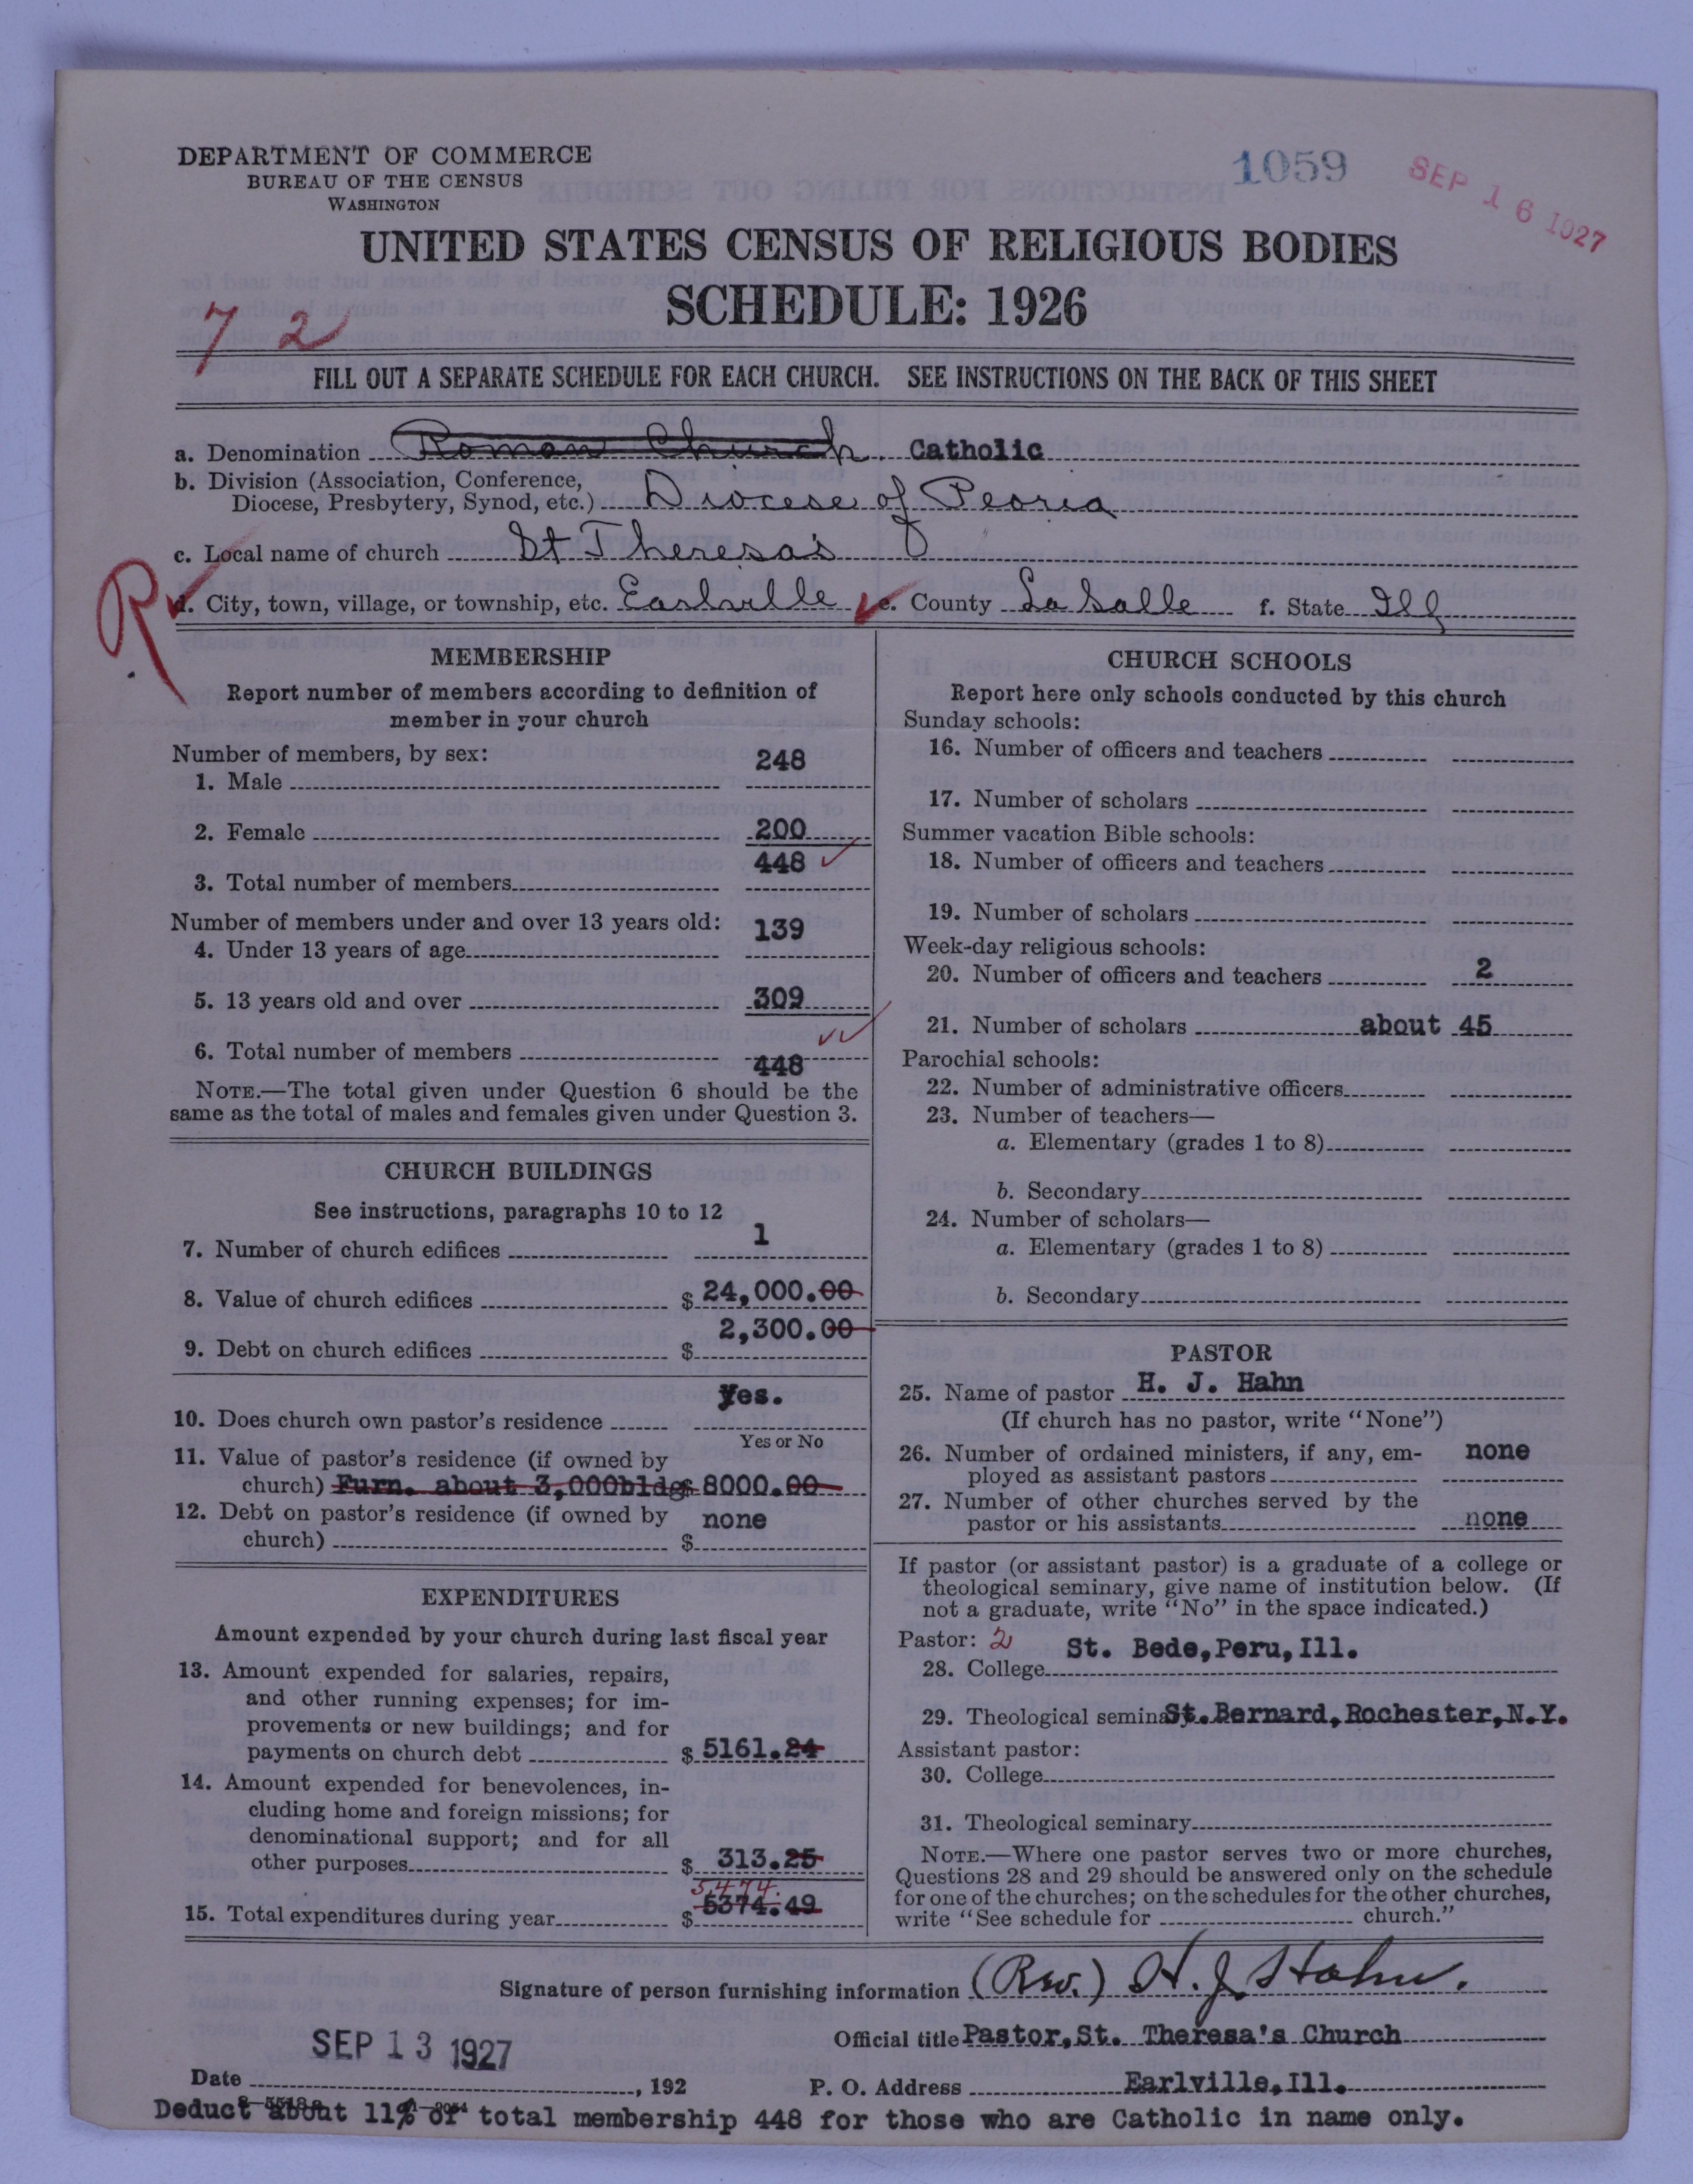 DEPARTMENT OF COMMERCE
BUREAU OF THE CENSUS
WASHINGTON
1059
SEP 16 1927
UNITED STATES CENSUS OF RELIGIOUS BODIES
SCHEDULE: 1926
72
FILL OUT A SEPARATE SCHEDULE FOR EACH CHURCH. SEE INSTRUCTIONS ON THE BACK OF THIS SHEET
a. Denomination Roman Church. Catholic
b. Division (Association, Conference,
Diocese, Presbytery, Synod, etc.) Diocese of Peoria
c. Local name of church St Theresa's
R
d. City, town, village, or township, etc. Earlville e. County La Salle f. State Ill
MEMBERSHIP
Report number of members according to definition of
member in your church
Number of members, by sex:
1. Male 248
2. Female 200
3. Total number of members 448
Number of members under and over 13 years old:
4. Under 13 years of age 139
5. 13 years old and over 309
6. Total number of members 448
NOTE.—The total given under Question 6 should be the
same as the total of males and females given under Question 3.
CHURCH BUILDINGS
See instructions, paragraphs 10 to 12
7. Number of church edifices 1
8. Value of church edifices $ 24,000.00
9. Debt on church edifices $ 2,300.00
10. Does church own pastor's residence Yes.
Yes or No
11. Value of pastor's residence (if owned by
church) Furn. about 3,000 bldg $ 8000.00
12. Debt on pastor's residence (if owned by
church) $ none
EXPENDITURES
Amount expended by your church during last fiscal year
13. Amount expended for salaries, repairs,
and other running expenses; for im-
provements or new buildings; and for
payments on church debt $ 5161.24
14. Amount expended for benevolences, in-
cluding home and foreign missions; for
denominational support; and for all
other purposes $ 313.25
5,474.
15. Total expenditures during year $ 5374.49
CHURCH SCHOOLS
Report here only schools conducted by this church
Sunday schools:
16. Number of officers and teachers
17. Number of scholars
Summer vacation Bible schools:
18. Number of officers and teachers
19. Number of scholars
Week-day religious schools:
20. Number of officers and teachers 2
21. Number of scholars about 45
Parochial schools:
22. Number of administrative officers
23. Number of teachers—
a. Elementary (grades 1 to 8)
b. Secondary
24. Number of scholars—
a. Elementary (grades 1 to 8)
b. Secondary
PASTOR
25. Name of pastor H. J. Hahn
(If church has no pastor, write "None")
26. Number of ordained ministers, if any, em-
ployed as assistant pastors none
27. Number of other churches served by the
pastor or his assistants none
If pastor (or assistant pastor) is a graduate of a college or
theological seminary, give name of institution below. (If
not a graduate, write "No" in the space indicated.)
Pastor: 2
28. College St. Bede, Peru, Ill.
29. Theological seminary St. Bernard, Rochester, N.Y.
Assistant pastor:
30. College
31. Theological seminary
NOTE.—Where one pastor serves two or more churches,
Questions 28 and 29 should be answered only on the schedule
for one of the churches; on the schedules for the other churches,
write "See schedule for church."
Signature of person furnishing information (Rev.) H. J. Hahn.
Official title Pastor, St. Theresa's Church
SEP 13 1927
Date , 192
P. O. Address Earlville, Ill.
Deduct about 11% of total membership 448 for those who are Catholic in name only.